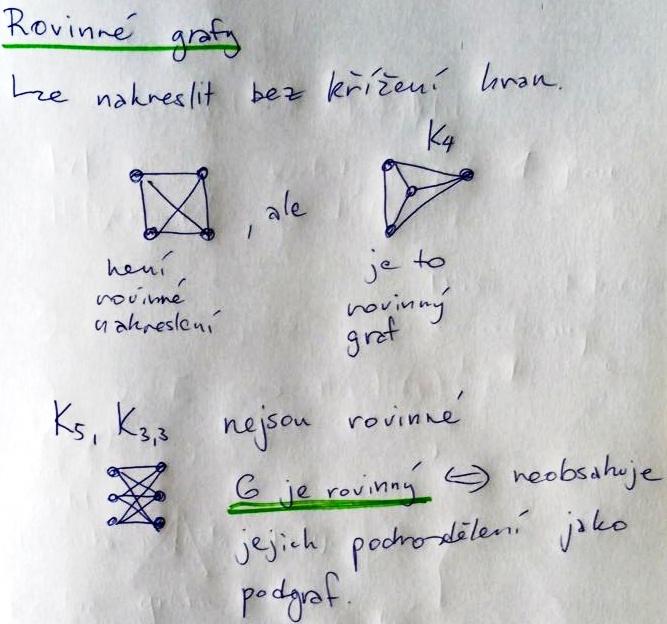 Rovinné grafy
Lze nakreslit bez křížení hran.
K4
, ale
není
rovinné
nakreslení
je to
rovinný
graf
K5, K3,3 nejsou rovinné
G je rovinný ⇔ neobsahuje
jejich podrozdělení jako
podgraf.